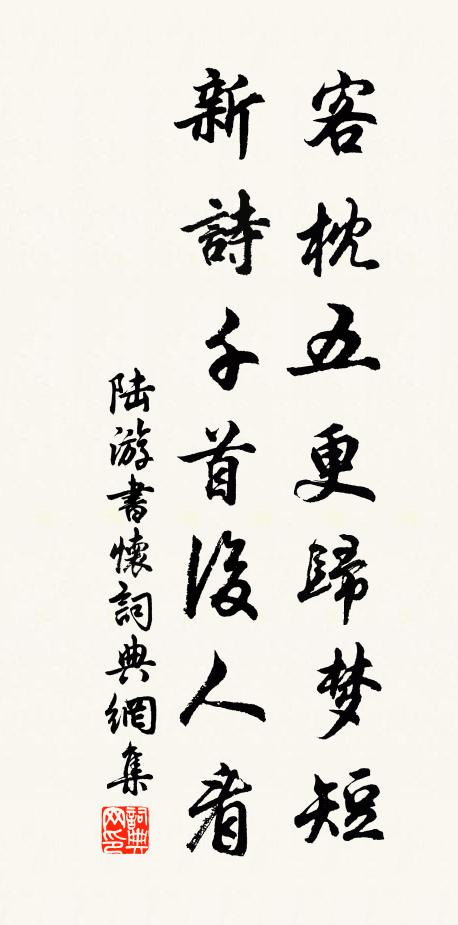 客枕五更歸梦短
新詩千首後人看
陆游書懷詞典網集
詞典网印